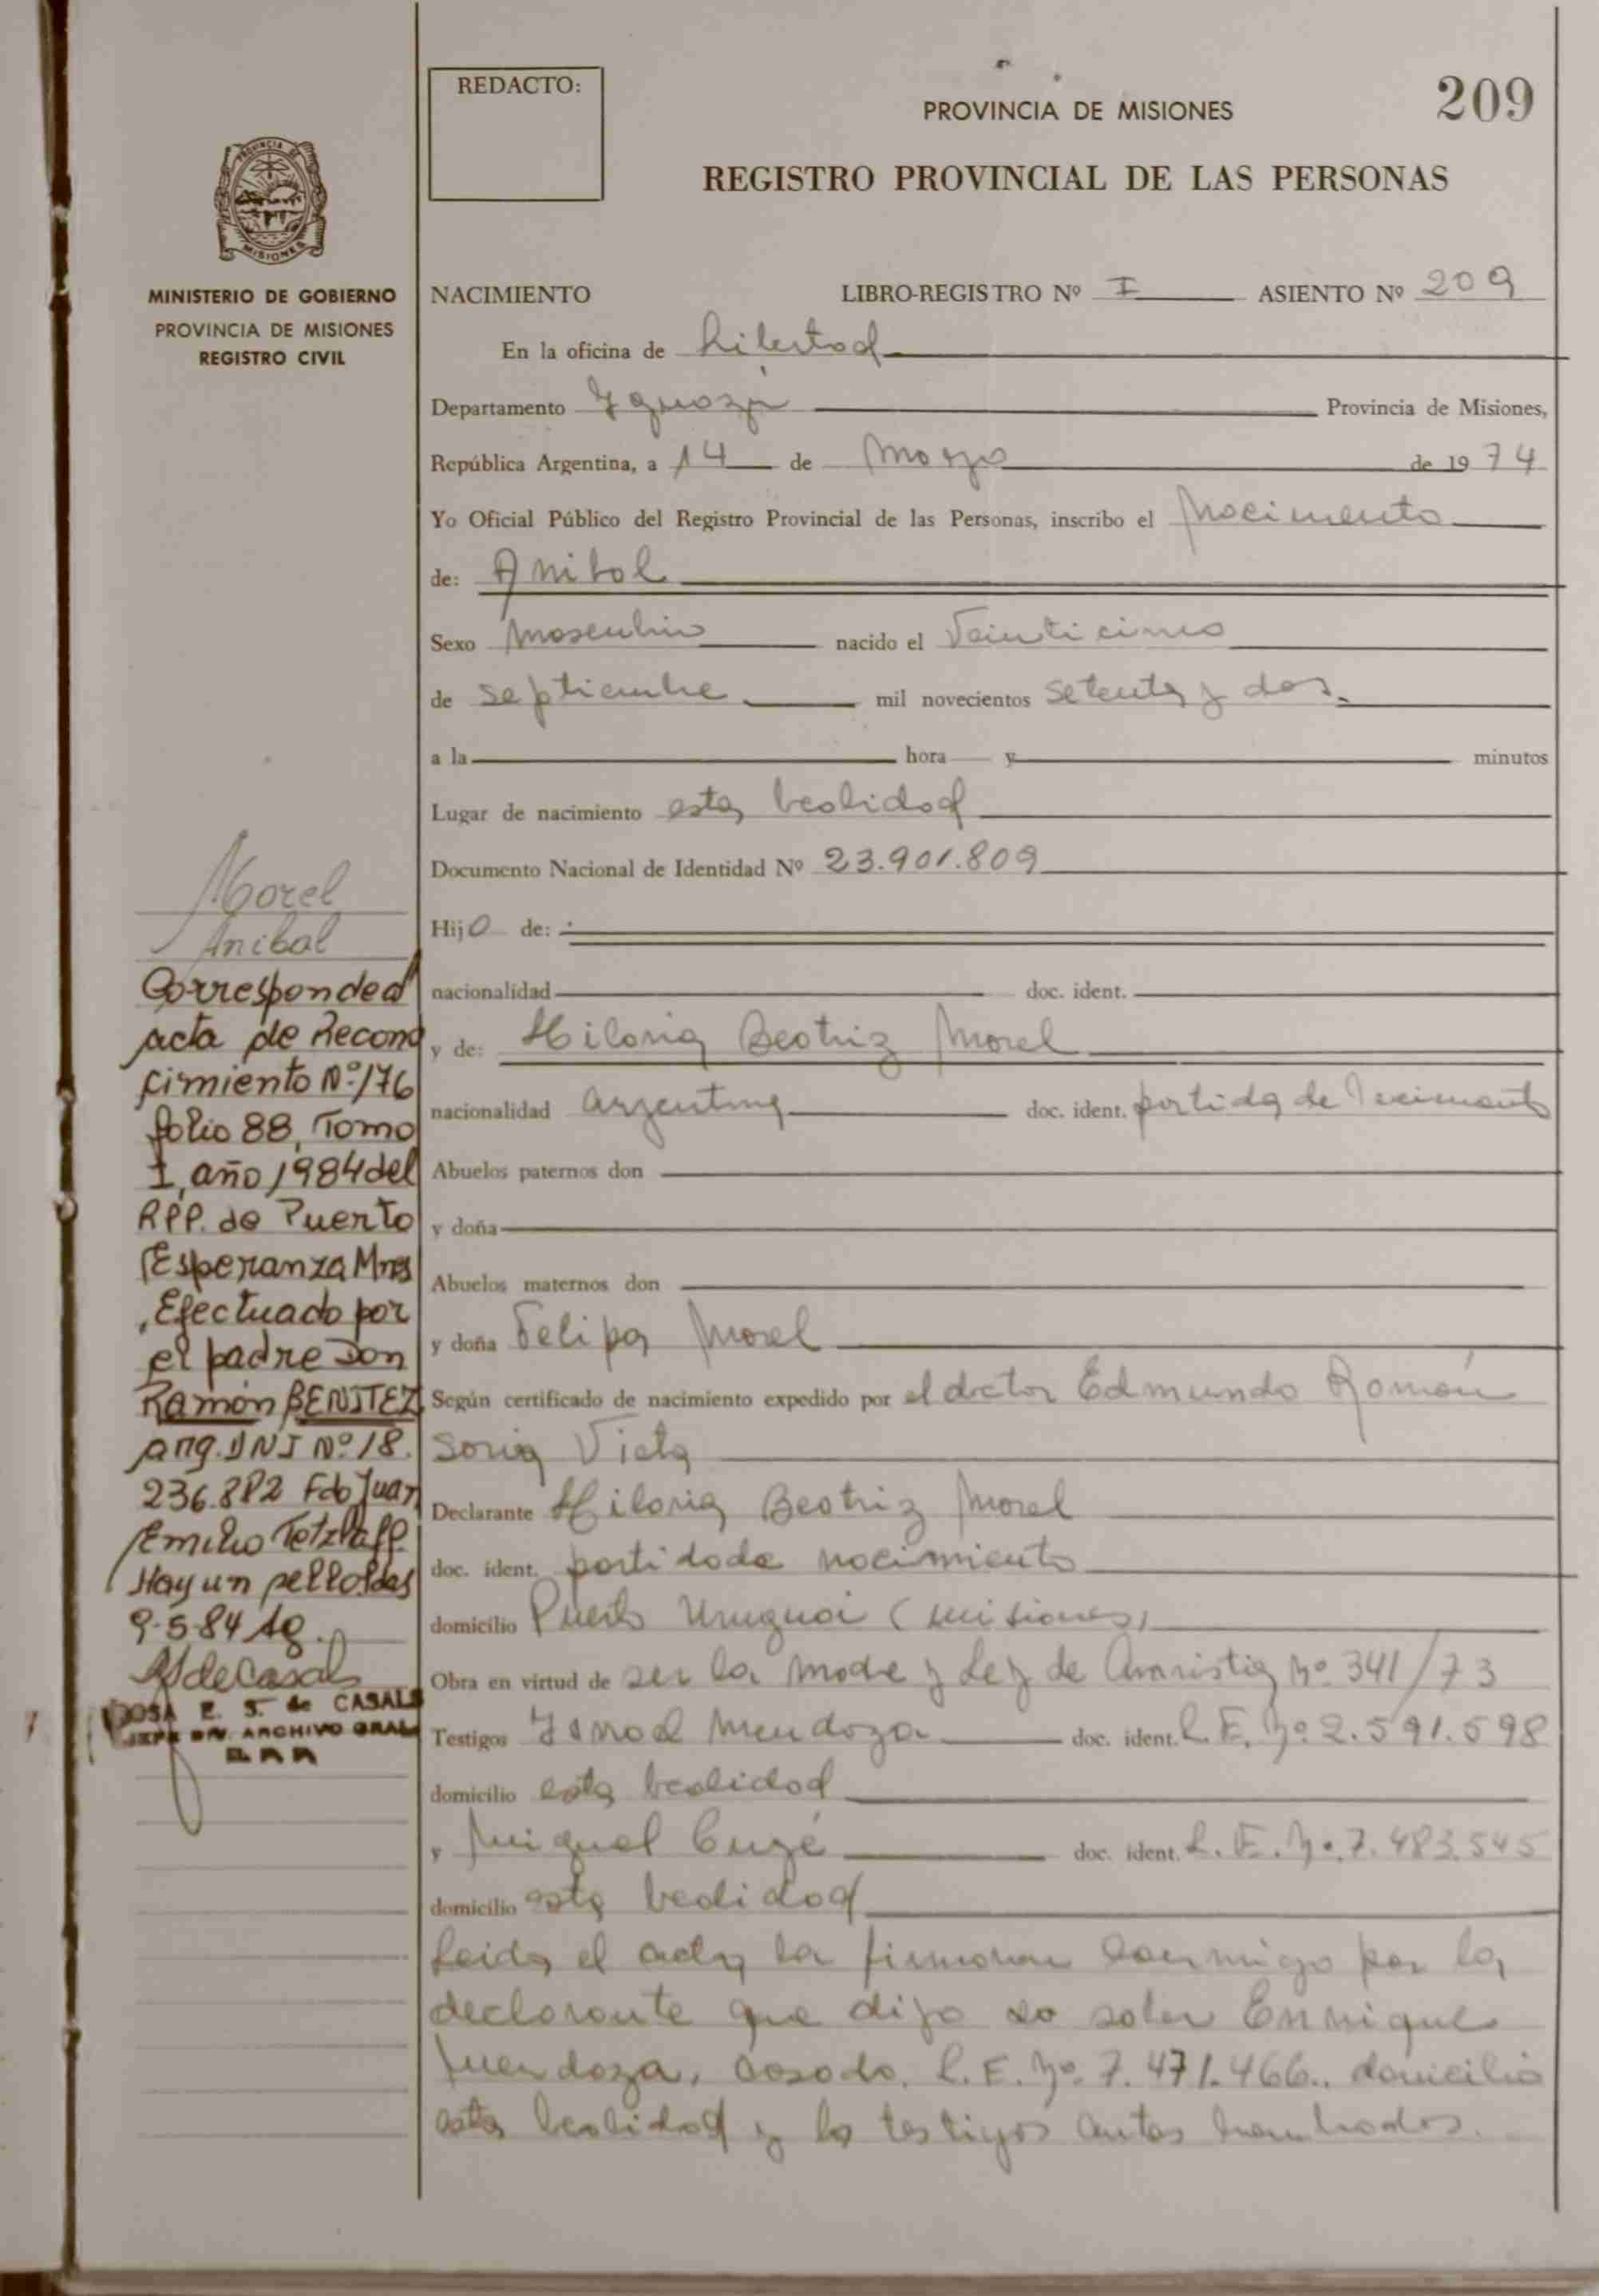 REDACTO:
PROVINCIA DE MISIONES
209
REGISTRO PROVINCIAL DE LAS PERSONAS
PROVINCIA DE
MISIONES
MINISTERIO DE GOBIERNO
PROVINCIA DE MISIONES
REGISTRO CIVIL
NACIMIENTO LIBRO-REGISTRO Nº I ASIENTO Nº 209
En la oficina de Libertad
Departamento Iguazú Provincia de Misiones,
República Argentina, a 14 de Marzo de 1974
Yo Oficial Público del Registro Provincial de las Personas, inscribo el Nacimiento
de: Anibal
Sexo Masculino nacido el Veinticinco
de septiembre mil novecientos setenta y dos.
a la hora y minutos
Lugar de nacimiento esta localidad
Documento Nacional de Identidad Nº 23.901.809
Hijo de:
nacionalidad doc. ident.
y de: Hilaria Beatriz Morel
nacionalidad argentina doc. ident. partida de Nacimiento
Abuelos paternos don
y doña
Abuelos maternos don
y doña Felipa Morel
Según certificado de nacimiento expedido por el doctor Edmundo Román
Soria Vieta
Declarante Hilaria Beatriz Morel
doc. ident. partida de nacimiento
domicilio Puerto Uruguai (Misiones)
Obra en virtud de ser la madre y Ley de Amnistia Nº 341/73
Testigos Ismael Mendoza doc. ident. L.E. Nº 2.591.598
domicilio esta localidad
y Miguel doc. ident. L.E. Nº 7.483.545
domicilio esta localidad
Leida el acta la firmaron conmigo por la
declarante que dijo no saber Enrique
Mendoza, casado, L.E. Nº 7.471.466., domicilio
esta localidad y los testigos antes nombrados.
Morel
Anibal
Corresponde al
acta de Recono
cimiento Nº 176
folio 88, Tomo
I, año 1984 del
RPP. de Puerto
Esperanza Mnes
, Efectuado por
el padre Don
Ramón BENITEZ
arg. DNI Nº 18.
236.882 Fdo Juan
Emilio Tetzlaff.
Hay un sello. Pdas
9-5-84
ROSA E. S. de CASALS
JEFE DIV. ARCHIVO GRAL